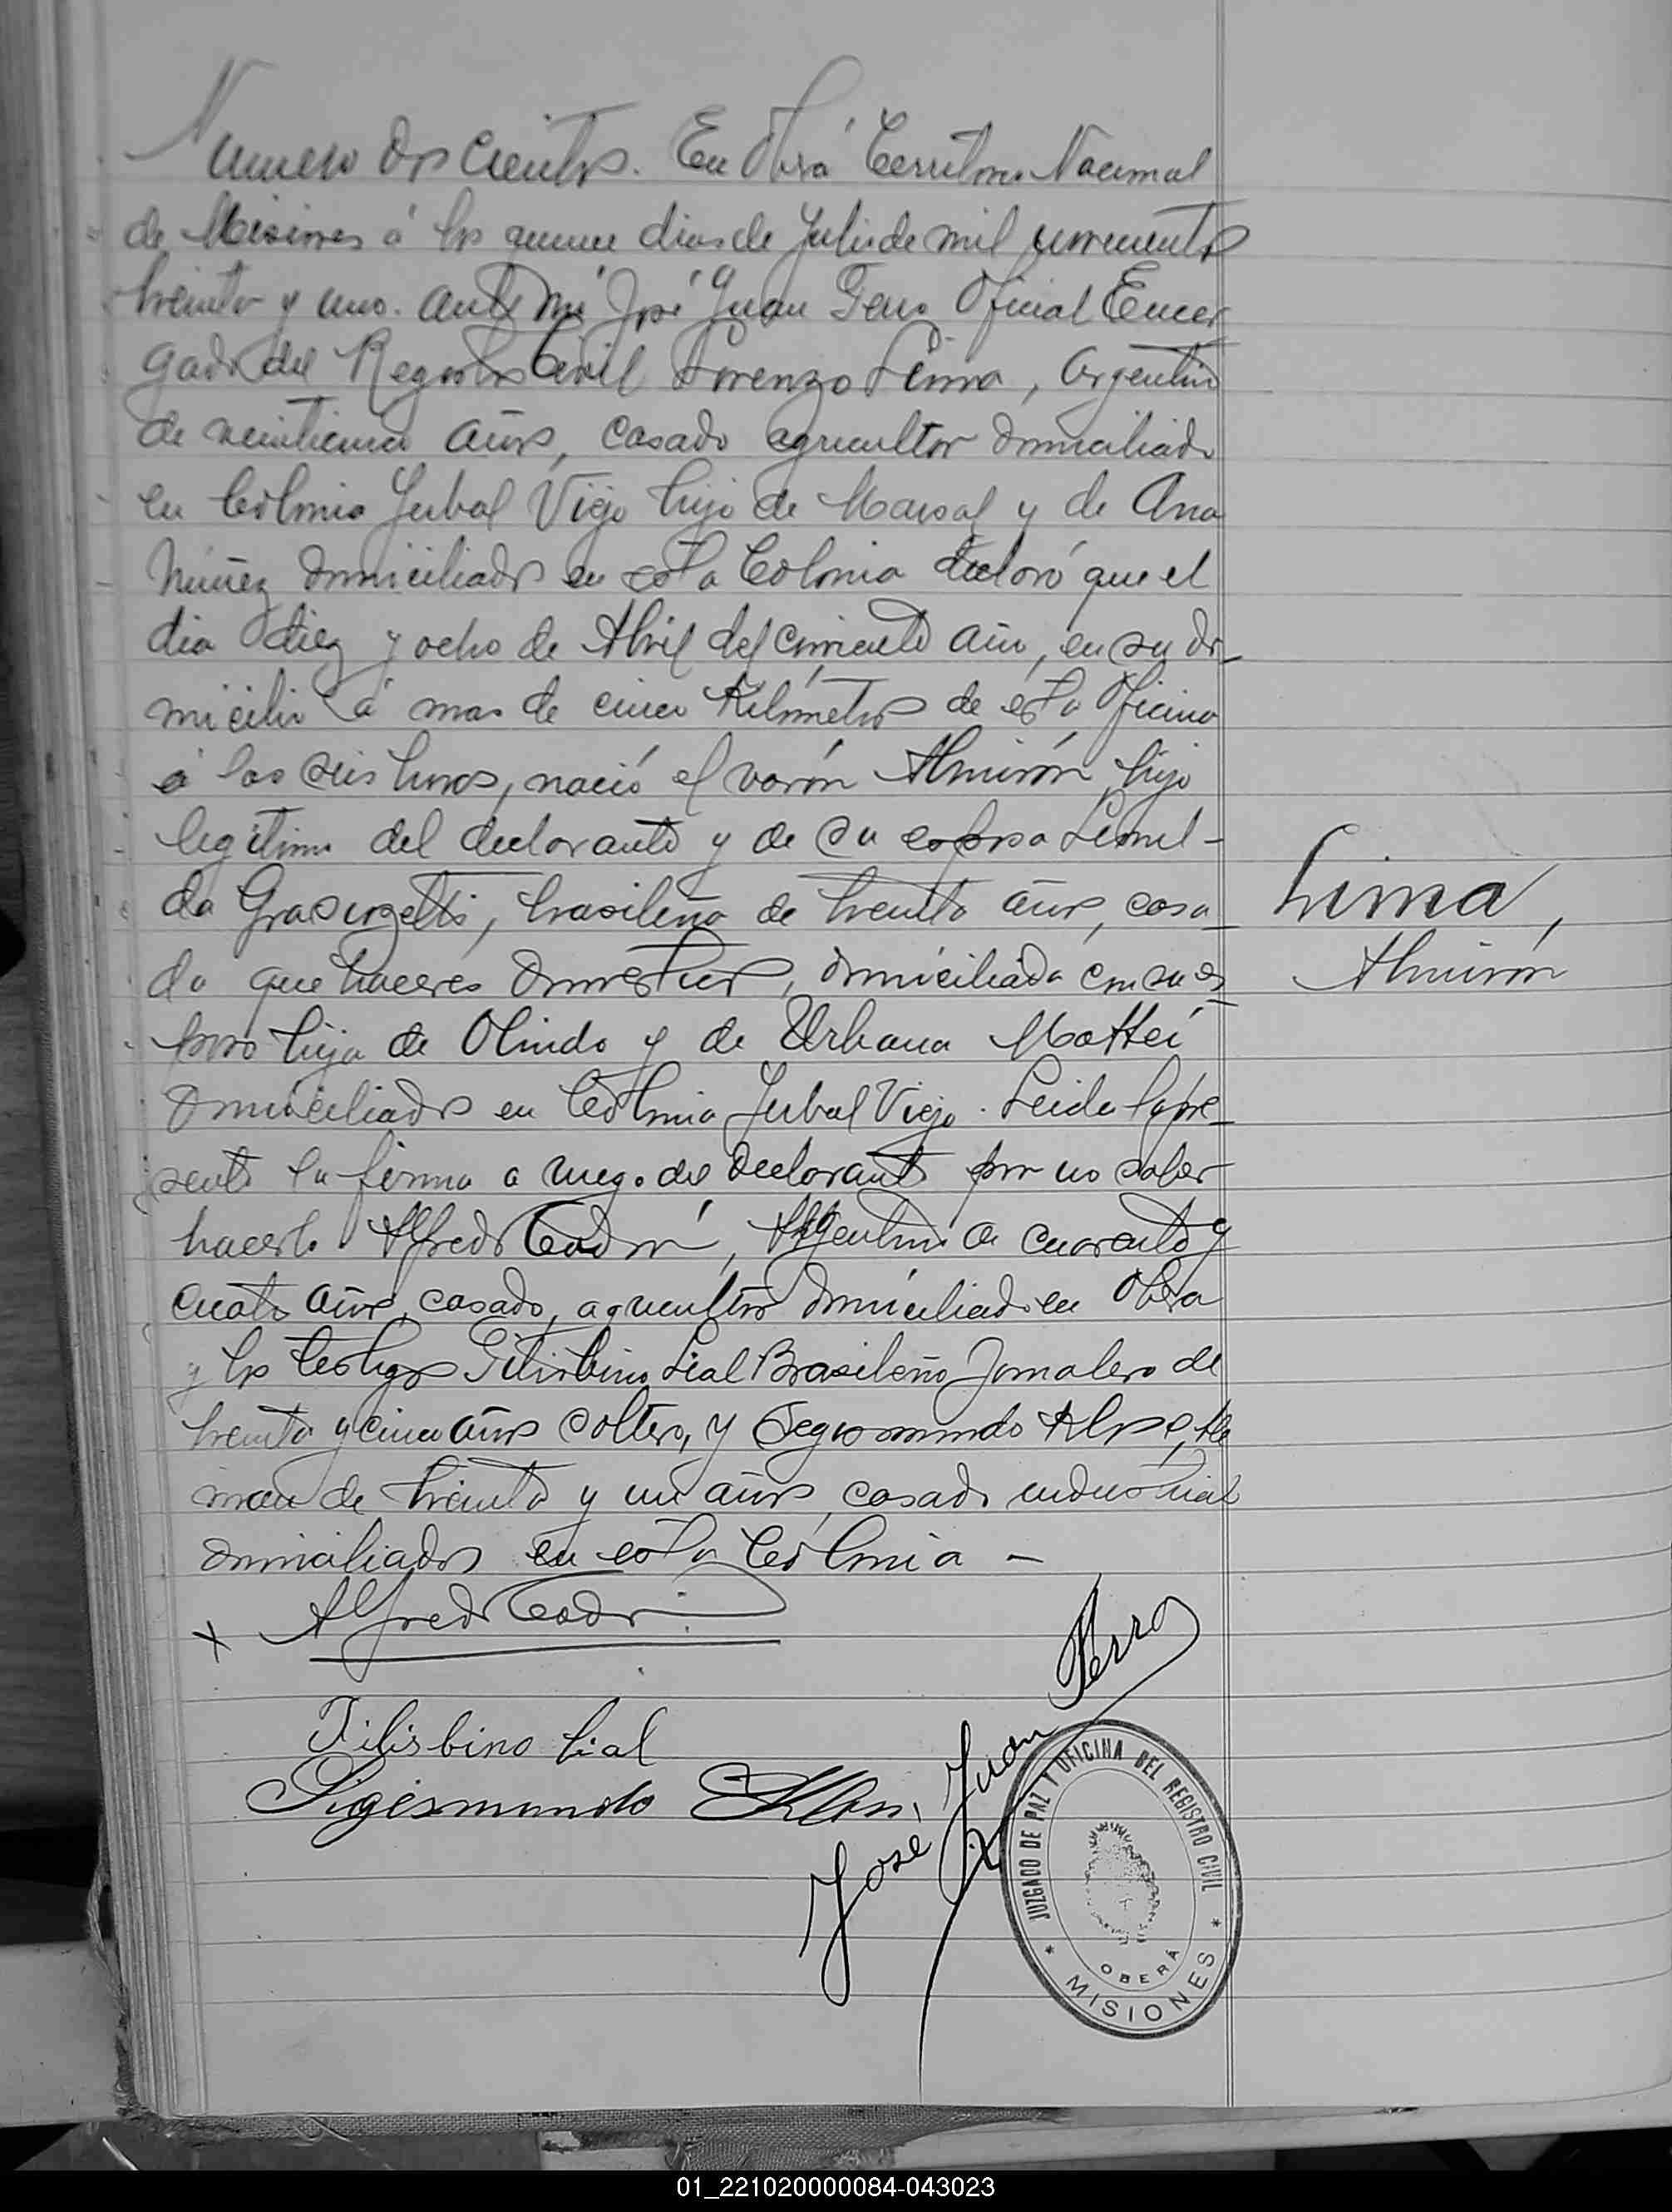 Numero Dos Cientos. En Oberá Territorio Nacional
de Misiones á los quince dias de Julio de mil novecientos
treinta y uno. Ante mi José Juan Ferro Oficial Encar
gado del Registro Civil Lorenzo Lima, Argentino
de veinticinco años, casado agricultor domiciliado
en Colonia Yerbal Viejo hijo de Marsal y de Ana
Nuñez domiciliados en esta Colonia declaró que el
dia diez y ocho de Abril del corriente año, en su do-
micilio á mas de cinco Kilómetros de esta Oficina
á las seis horas, nació el varón Almirón, hijo
legitimo del declarante y de su esposa Lemil-
da, brasileña de treinta años, casa
da que haceres domesticos, domiciliada con su es
poso hija de Olindo y de Urbana Mattei
domiciliados en Colonia Yerbal Viejo. Leida la pre-
sente la firma a ruego del declarante por no saber
hacerlo Alfredo Codri, Argentino de cuarenta y
cuatro años, casado, agricultor domiciliado en Obera
y los testigos Filisbino Lial Brasileño Jornalero de
treinta y cinco años soltero, y Segismundo Ale
man de treinta y un años, casado industrial
domiciliados en esta Colonia -
x Alfredo Codri
Filisbino Lial
Sigismundo
José Juan Ferro
Lima,
Almirón
JUZGADO DE PAZ Y OFICINA DEL REGISTRO CIVIL
OBERÁ
* MISIONES *
01_221020000084-043023